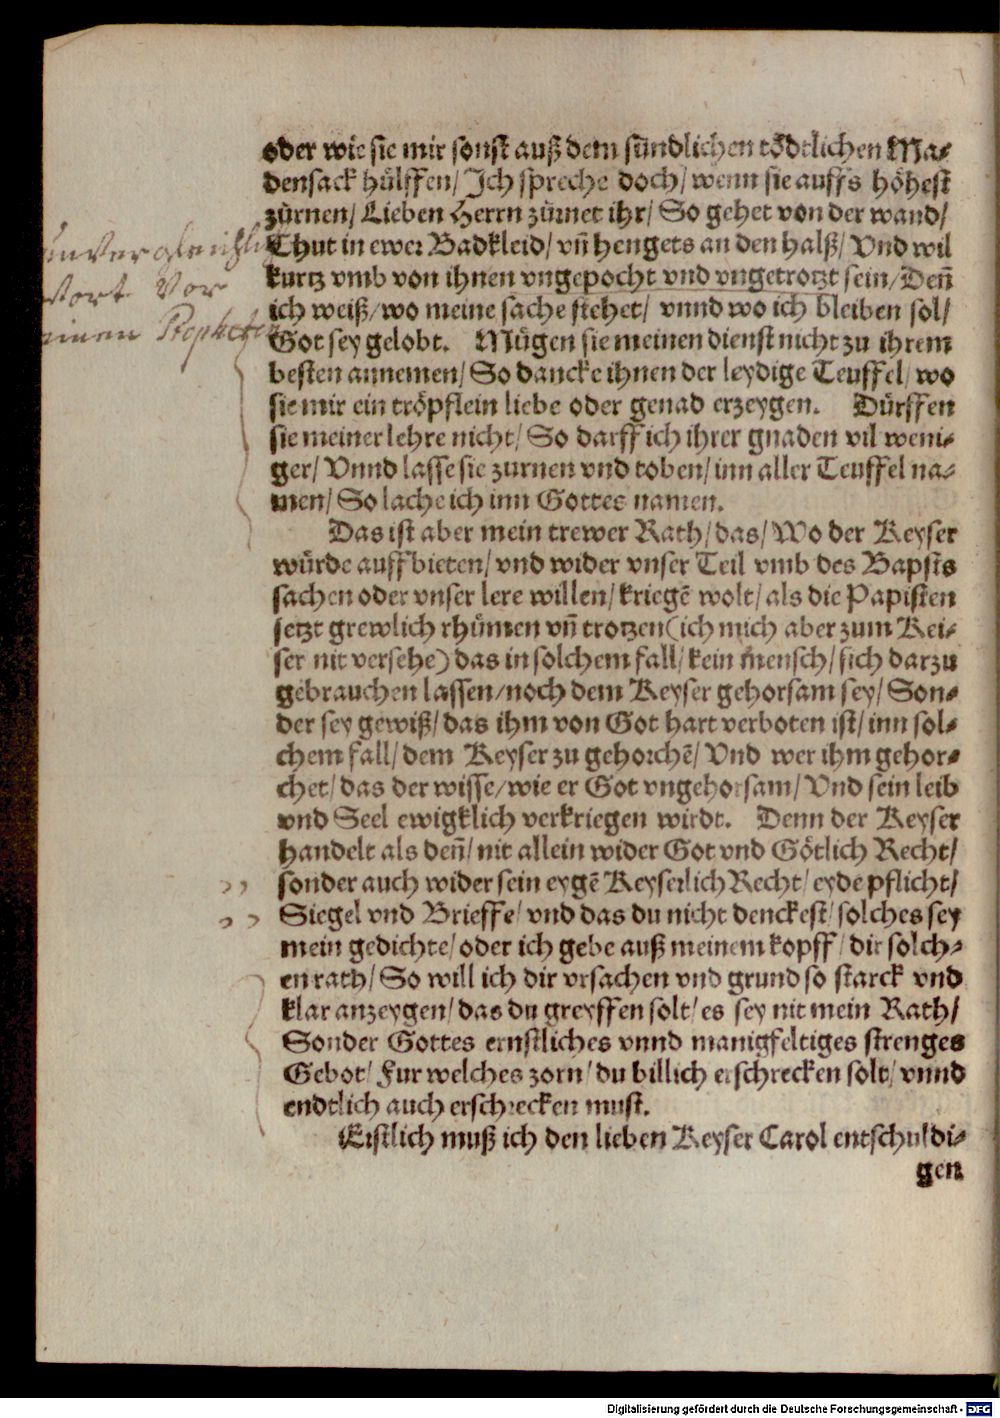 oder wie sie mir sonst auß dem sündlichen tödtlichen Ma-
densack hülffen/ Ich spreche doch/ wenn sie auffs höhest
zürnen/ Lieben Herrn zürnet ihr/ So gehet von der wand/
Thut in ewer Badkleid/ vñ hengets an den halß/ Vnd wil
kurtz vmb von ihnen vngepocht vnd vngetrotzt sein/ Deñ
ich weiß/ wo meine sache stehet/ vnnd wo ich bleiben sol/
Got sey gelobt. Mügen sie meinen dienst nicht zu ihrem
besten annemen/ So dancke ihnen der leydige Teuffel/ wo
sie mir ein tröpflein liebe oder genad erzeygen. Dürffen
sie meiner lehre nicht/ So darff ich ihrer gnaden vil weni-
ger/ Vnnd lasse sie zurnen vnd toben/ inn aller Teuffel na-
men/ So lache ich inn Gottes namen.
Das ist aber mein trewer Rath/ das/ Wo der Keyser
würde auffbieten/ vnd wider vnser Teil vmb des Bapsts
sachen oder vnser lere willen/ kriegē wolt/ als die Papisten
jetzt grewlich rhümen vñ trotzen (ich mich aber zum Kei-
ser nit versehe) das in solchem fall/ kein mensch/ sich darzu
gebrauchen lassen/ noch dem Keyser gehorsam sey/ Son-
der sey gewiß/ das ihm von Got hart verboten ist/ inn sol-
chem fall/ dem Keyser zu gehorchē/ Vnd wer ihm gehor-
chet/ das der wisse/ wie er Got vngehorsam/ Vnd sein leib
vnd Seel ewigklich verkriegen wirdt. Denn der Keyser
handelt als deñ/ nit allein wider Got vnd Götlich Recht/
sonder auch wider sein eygē Keyserlich Recht/ eyde pflicht/
Siegel vnd Brieffe/ vnd das du nicht denckest/ solches sey
mein gedichte/ oder ich gebe auß meinem kopff/ dir solch-
en rath/ So will ich dir vrsachen vnd grund so starck vnd
klar anzeygen/ das du greyffen solt/ es sey nit mein Rath/
Sonder Gottes ernstliches vnnd manigfeltiges strenges
Gebot/ Fur welches zorn/ du billich erschrecken solt/ vnnd
endtlich auch erschrecken must.
Erstlich muß ich den lieben Keyser Carol entschuldi-
gen
vor
Propheten
Digitalisierung gefördert durch die Deutsche Forschungsgemeinschaft - DFG